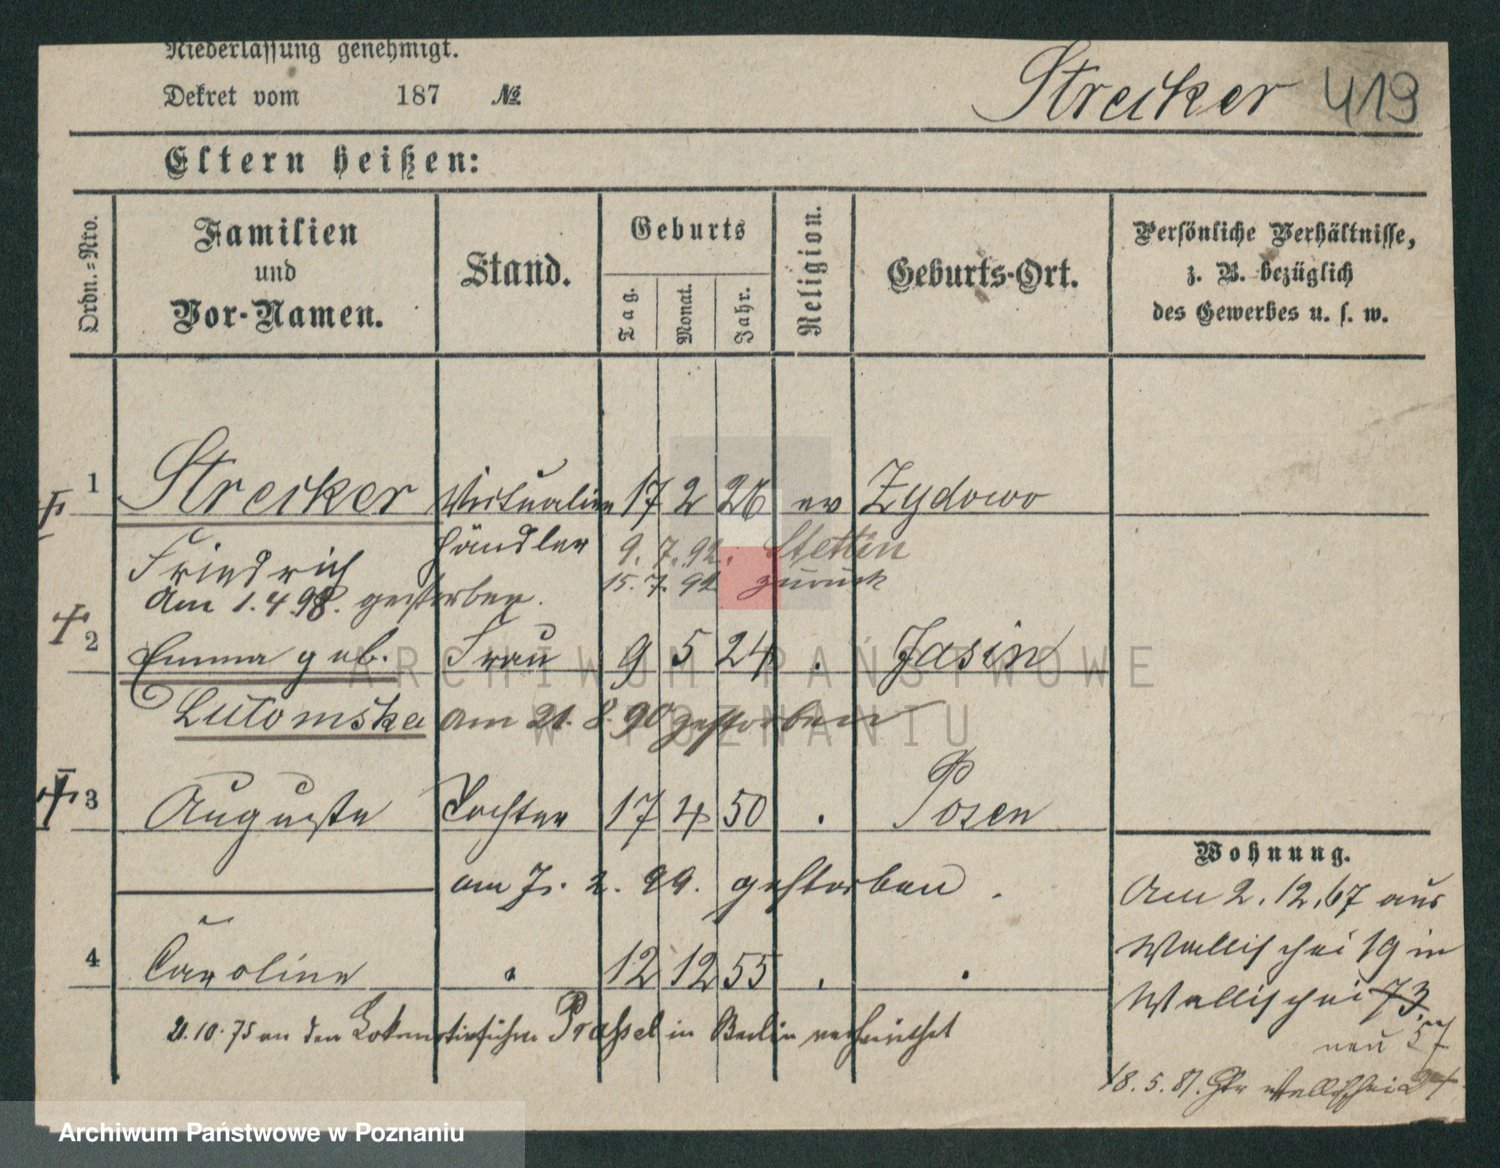 Niederlassung genehmigt.
Dekret vom 187 №
Strecker 419
Eltern heißen:
Ordn.-Nro.
Familien
und
Vor-Namen.
Stand.
Geburts
Tag.
Monat.
Jahr.
Religion.
Geburts-Ort.
Persönliche Verhältnisse,
z. B. bezüglich
des Gewerbes u. s. w.
1 Strecker Victualien 17 2 26 ev Zydowo
Friedrich händler 9. 7. 92. Stettin
15. 7. 92 zurück
am 1. 4 98. gestorben.
2 Emma geb. Frau 9 5 24 . Jasin
Lutomska am 21. 8. 90 gestorben
3 Auguste Tochter 17 4 50 . Posen
am 2. 99. gestorben.
4 Caroline " 12 12 55 . .
21. 10. 75 an den Lokomotivführer Prassel in Berlin verheirathet
Wohnung.
Am 2. 12. 67 aus
Wallischei 19 in
Wallischei 73
neu 57
18. 5. 81. Wallischei
ARCHIWUM PAŃSTWOWE
W POZNANIU
Archiwum Państwowe w Poznaniu